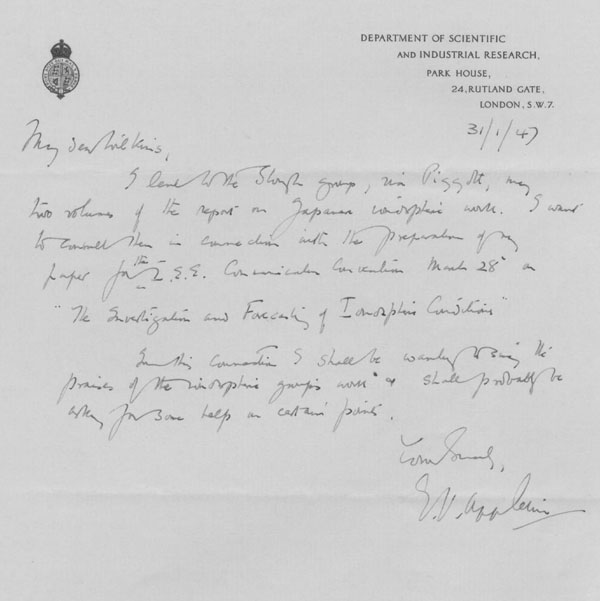 DEPARTMENT OF SCIENTIFIC
AND INDUSTRIAL RESEARCH,
PARK HOUSE,
24, RUTLAND GATE,
LONDON, S.W.7.
31/1/47
My dear Wilkins,
I lent to the Slough group, via Piggott, my
two volumes of the report on Japanese ionospheric work. I want
to consult them in connection with the preparation of my
paper for the I.E.E. Communication Convention March 28 on
"The Investigation and Forecasting of Ionospheric Conditions"
In this connection I shall be wanting to sing the
praises of the ionospheric groups work & shall probably be
asking for some help on certain points.
Yours sincerely,
E.V. Appleton